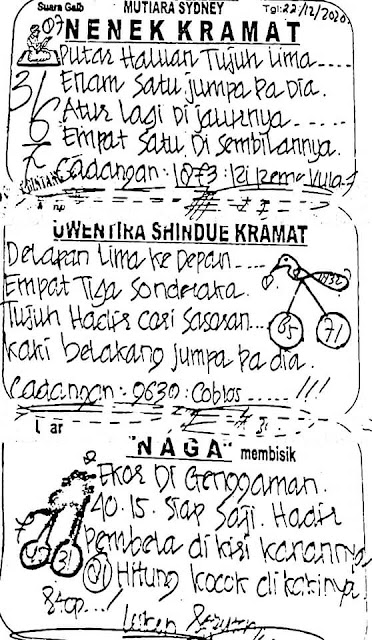 Suara Gaib MUTIARA SYDNEY Tgl: 22/12/2020.
07 NENEK KRAMAT
Putar Haluan Tujuh Lima.....
Enam Satu jumpa Pa Dia.
Atur Lagi Di jalurnya.....
Empat Satu Di Sembilannya.
Cadangan: 1873:
3/
6
7
BINTANG
UWENTIRA SHINDUE KRAMAT
Delapan Lima ke Depan....
Empat Tiga
Tujuh Hadir Cari Sasaran...
kaki belakang jumpa Pa dia.
Cadangan: 9630: Coblos.....!!!
85
71
"NAGA" membisik
Ekor Di Genggaman.
40.15. Siap Saji. Hadir
Pembela di kiri kanannya
Hitung kocok di kakinya
Stop...!